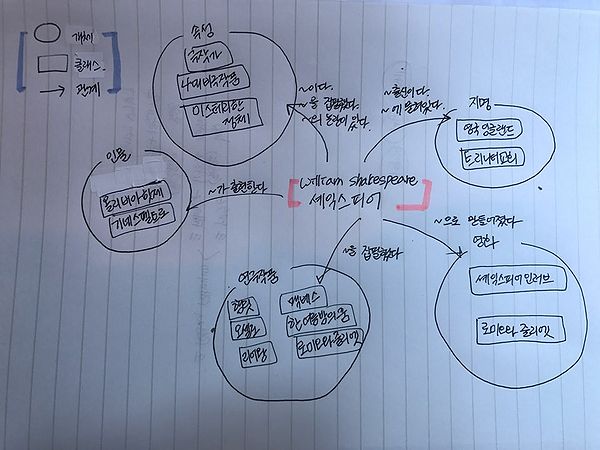 개체
클래스
관계
속성
극작가
4대비극작품
미스테리한
존재
~이다.
~을 집필했다.
~의 논란이 있다.
~출신이다.
~에 묻혀있다.
지명
영국 잉글랜드
트리니티교회
인물
올리비아 핫세
기네스펠트로
~가 출현한다
william shakespeare
셰익스피어
~을 집필했다
~으로 만들어졌다
영화
셰익스피어 인 러브
로미오와 줄리엣
햄릿
오셀로
리어왕
맥베스
한여름밤의 꿈
로미오와 줄리엣